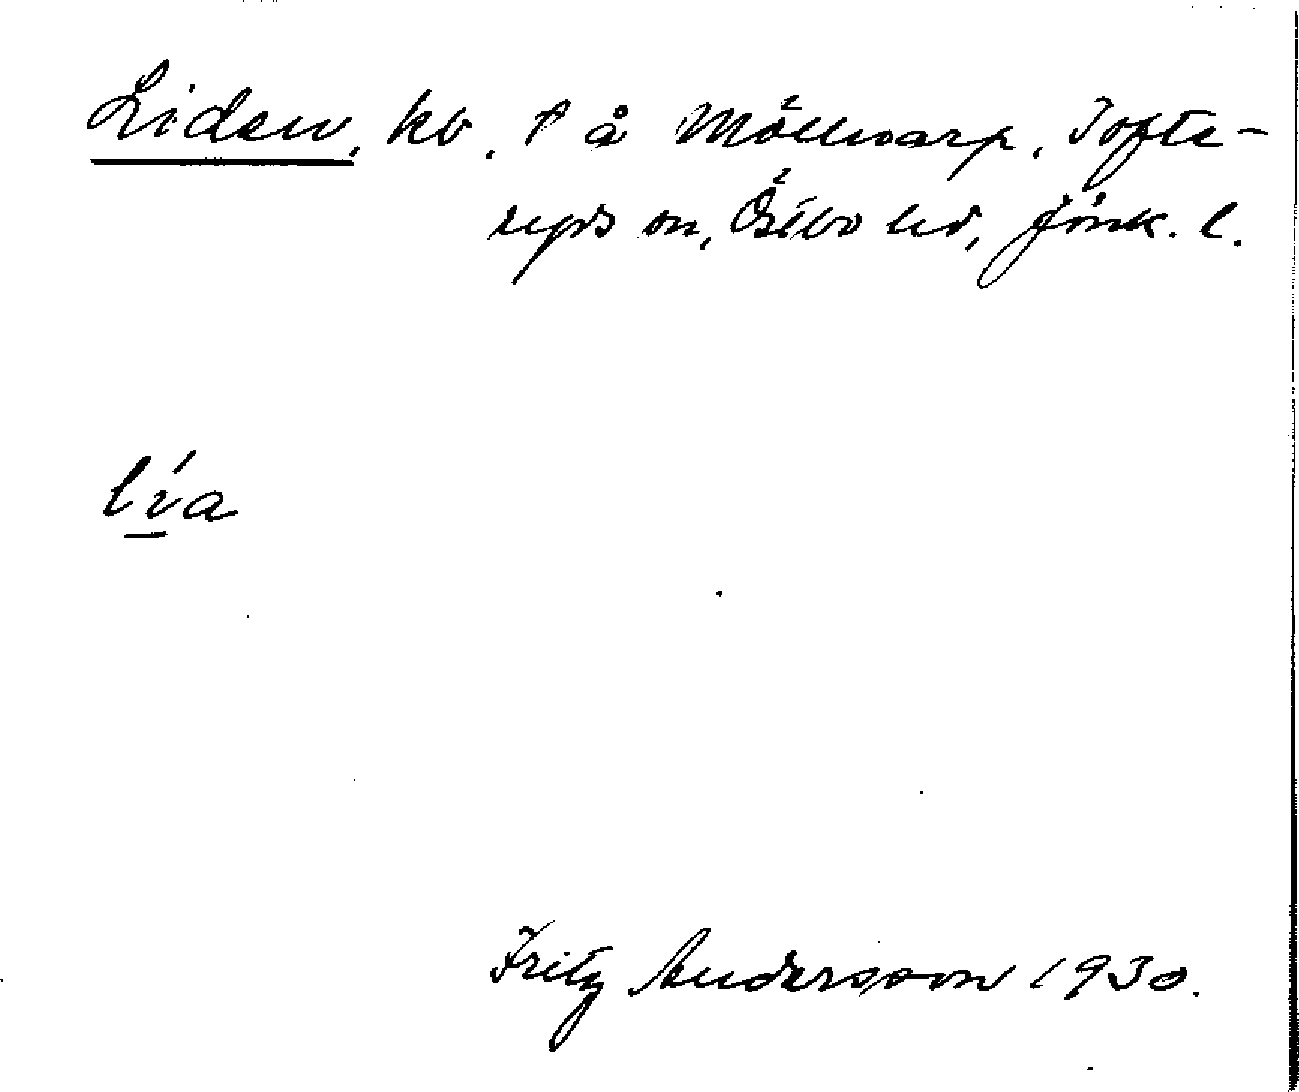 Liden, hv. † å Möllevarp, Tofte-
ryds sn, Östbo hd, Jönk. l.
lı́a
Fritz Andersson 1930.